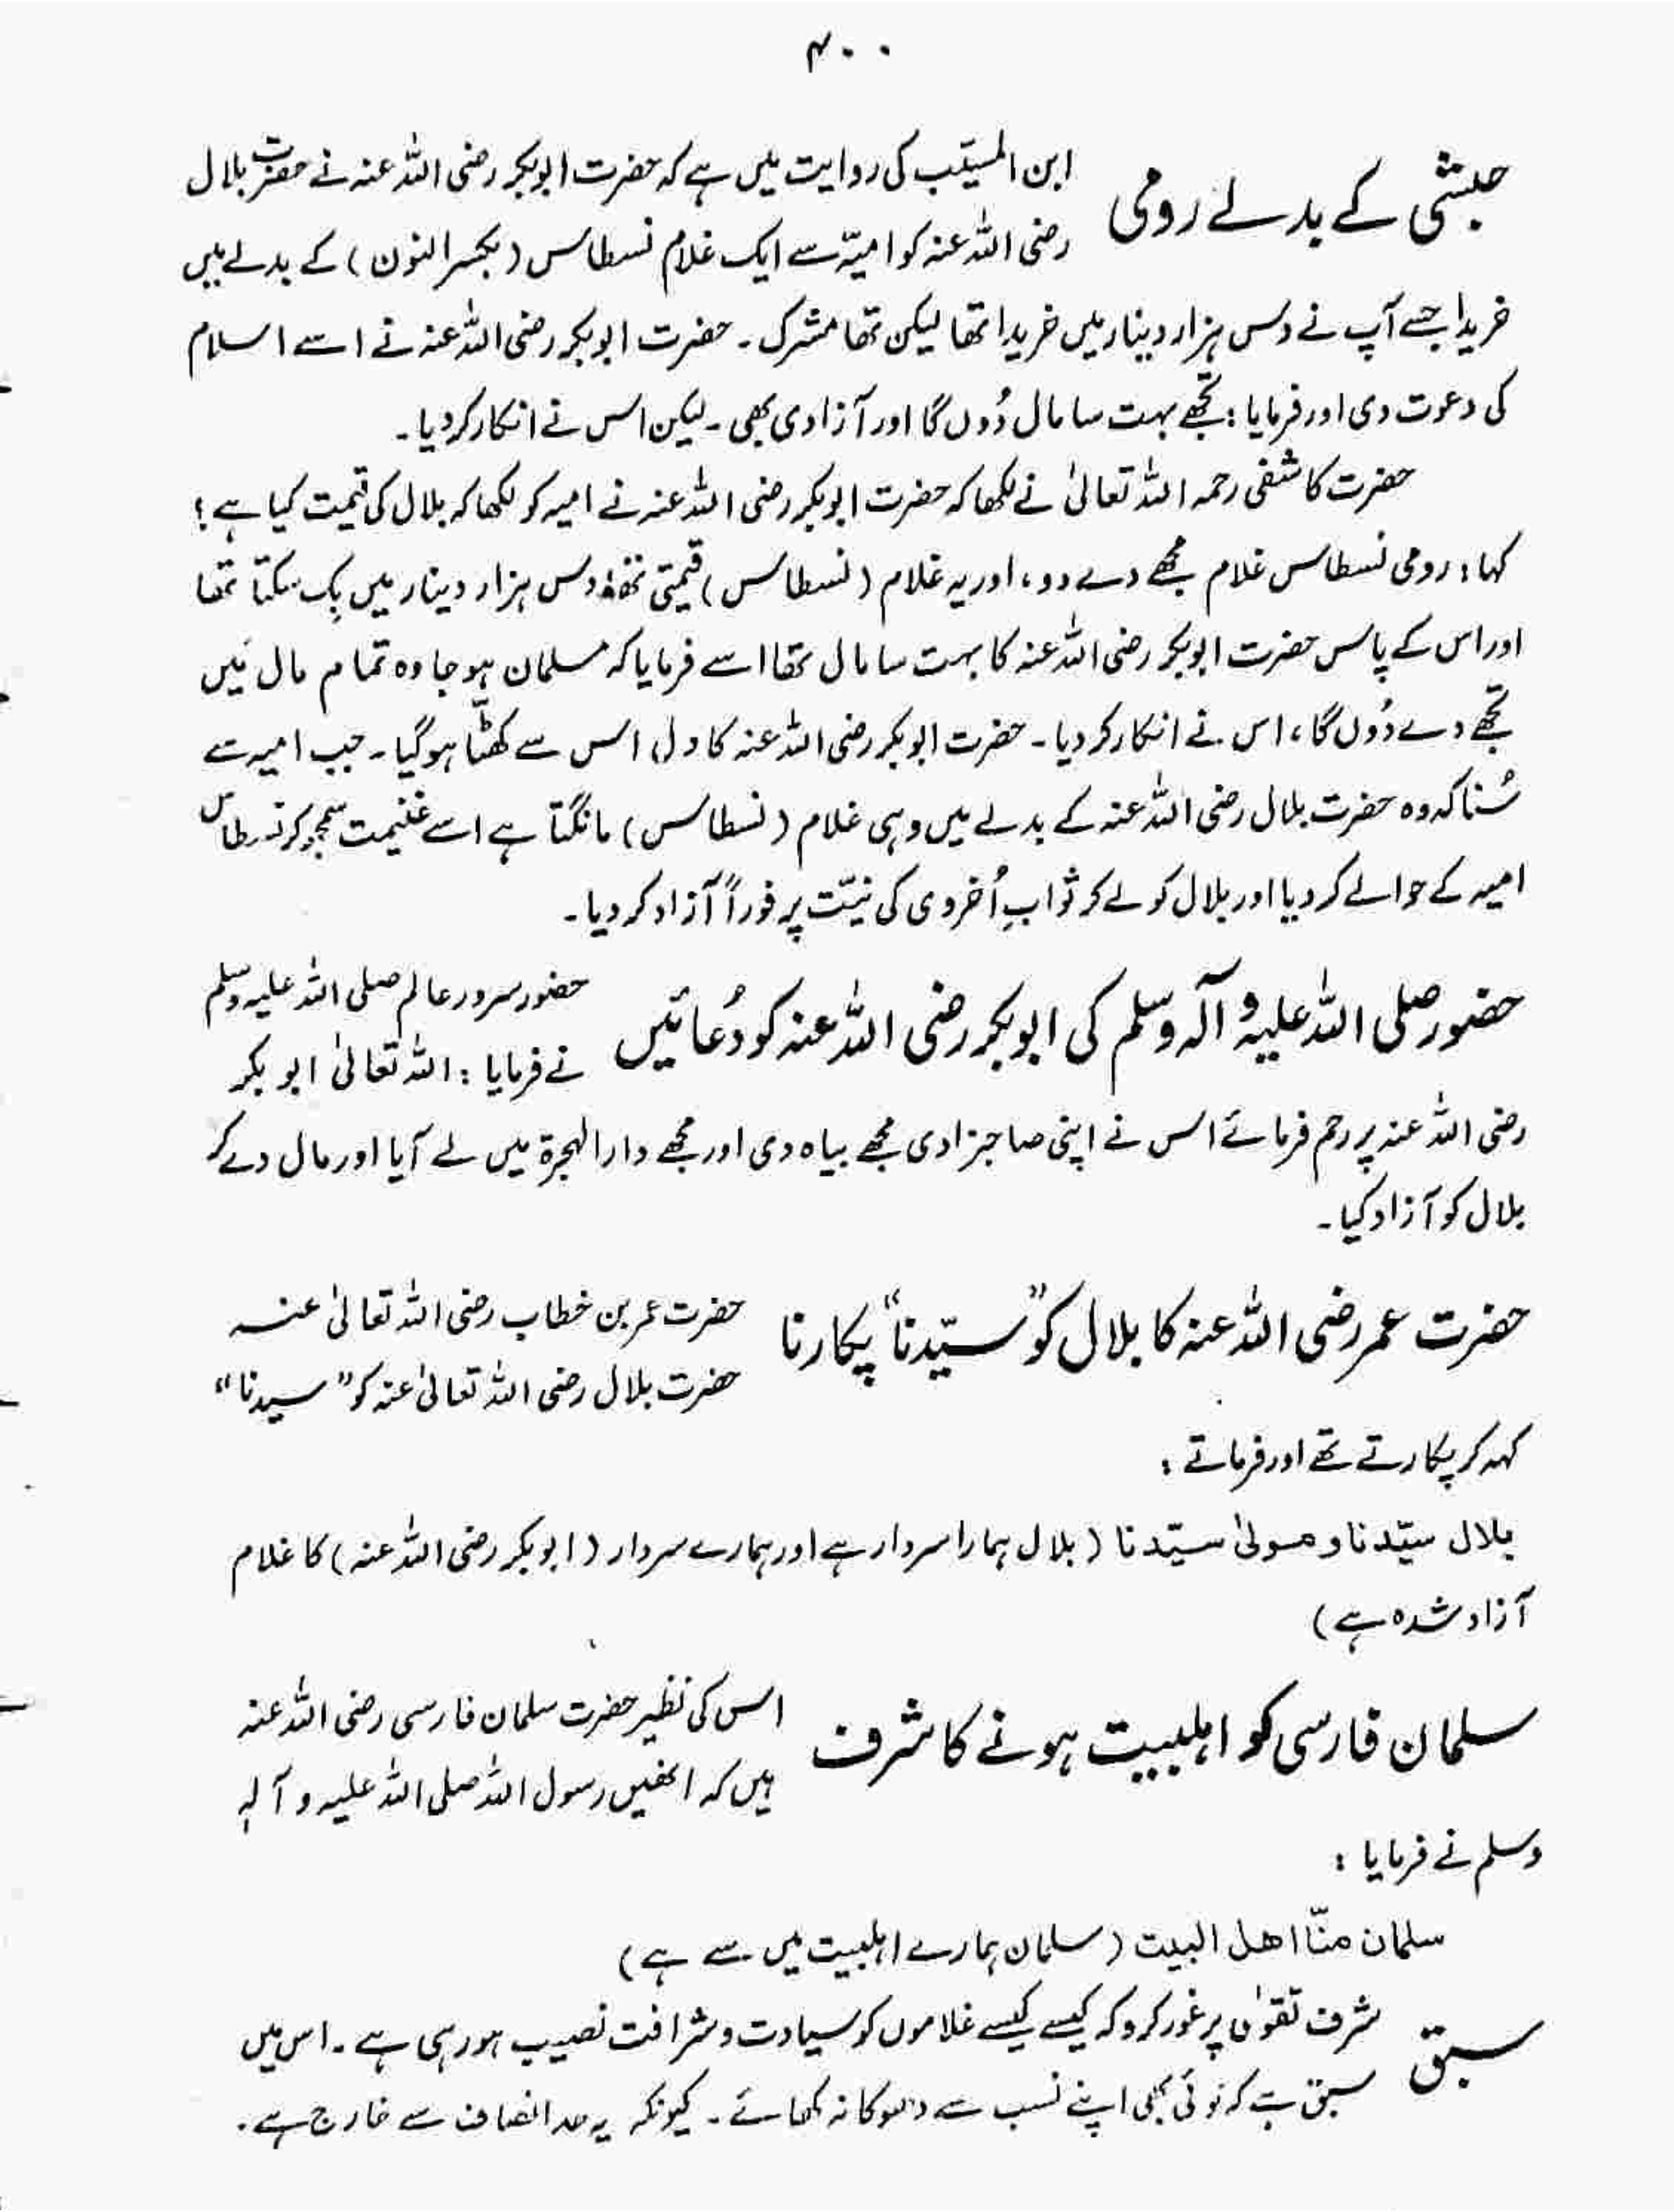 ۴۰۰
حبشی کے بدلے رومی
ابن المسیّب کی روایت میں ہے کہ حضرت ابوبکر رضی اللہ عنہ نے حضرت بلال
رضی اللہ عنہ کو امیّہ سے ایک غلام نسطاس (بکسر النون) کے بدلے میں
خریدا جسے آپ نے دس ہزار دینار میں خریدا تھا لیکن تھا مشرک۔ حضرت ابوبکر رضی اللہ عنہ نے اسے اسلام
کی دعوت دی اور فرمایا: تجھے بہت سا مال دُوں گا اور آزادی بھی۔ لیکن اس نے انکار کر دیا۔
حضرت کاشفی رحمہ اللہ تعالیٰ نے لکھا کہ حضرت ابوبکر رضی اللہ عنہ نے امیہ کو لکھا کہ بلال کی قیمت کیا ہے؟
کہا: رومی نسطاس غلام مجھے دے دو، اور یہ غلام (نسطاس) قیمتی تھا دس ہزار دینار میں بِک سکتا تھا
اور اس کے پاس حضرت ابوبکر رضی اللہ عنہ کا بہت سا مال تھا اسے فرمایا کہ مسلمان ہو جا وہ تمام مال مَیں
تجھے دے دُوں گا، اس نے انکار کر دیا۔ حضرت ابوبکر رضی اللہ عنہ کا دل اس سے کھٹّا ہو گیا۔ جب امیہ سے
سُنا کہ وہ حضرت بلال رضی اللہ عنہ کے بدلے میں وہی غلام (نسطاس) مانگتا ہے اسے غنیمت سمجھ کر نسطاس
امیہ کے حوالے کر دیا اور بلال کو لے کر ثوابِ اُخروی کی نیّت پر فوراً آزاد کر دیا۔
حضور صلی اللہ علیہ و آلہ وسلم کی ابوبکر رضی اللہ عنہ کو دُعائیں
حضور سرور عالم صلی اللہ علیہ وسلم
نے فرمایا: اللہ تعالیٰ ابوبکر
رضی اللہ عنہ پر رحم فرمائے اس نے اپنی صاحبزادی مجھے بیاہ دی اور مجھے دار الہجرۃ میں لے آیا اور مال دے کر
بلال کو آزاد کیا۔
حضرت عمر رضی اللہ عنہ کا بلال کو "سیّدنا" پکارنا
حضرت عمر بن خطاب رضی اللہ تعالیٰ عنہ
حضرت بلال رضی اللہ تعالیٰ عنہ کو "سیدنا"
کہہ کر پکارتے تھے اور فرماتے:
بلال سیّدنا و مولیٰ سیّدنا (بلال ہمارا سردار ہے اور ہمارے سردار (ابوبکر رضی اللہ عنہ) کا غلام
آزاد شدہ ہے)
سلمان فارسی کو اہلبیت ہونے کا شرف
اس کی نظیر حضرت سلمان فارسی رضی اللہ عنہ
ہیں کہ انھیں رسول اللہ صلی اللہ علیہ و آلہٖ
وسلم نے فرمایا:
سلمان منّا اھل البیت (سلمان ہمارے اہلبیت میں سے ہے)
سبق
شرف تقوٰی پر غور کرو کہ کیسے کیسے غلاموں کو سیادت و شرافت نصیب ہو رہی ہے۔ اس میں
سبق ہے کہ کوئی بھی اپنے نسب سے دھوکا نہ کھائے۔ کیونکہ یہ حد انصاف سے خارج ہے۔